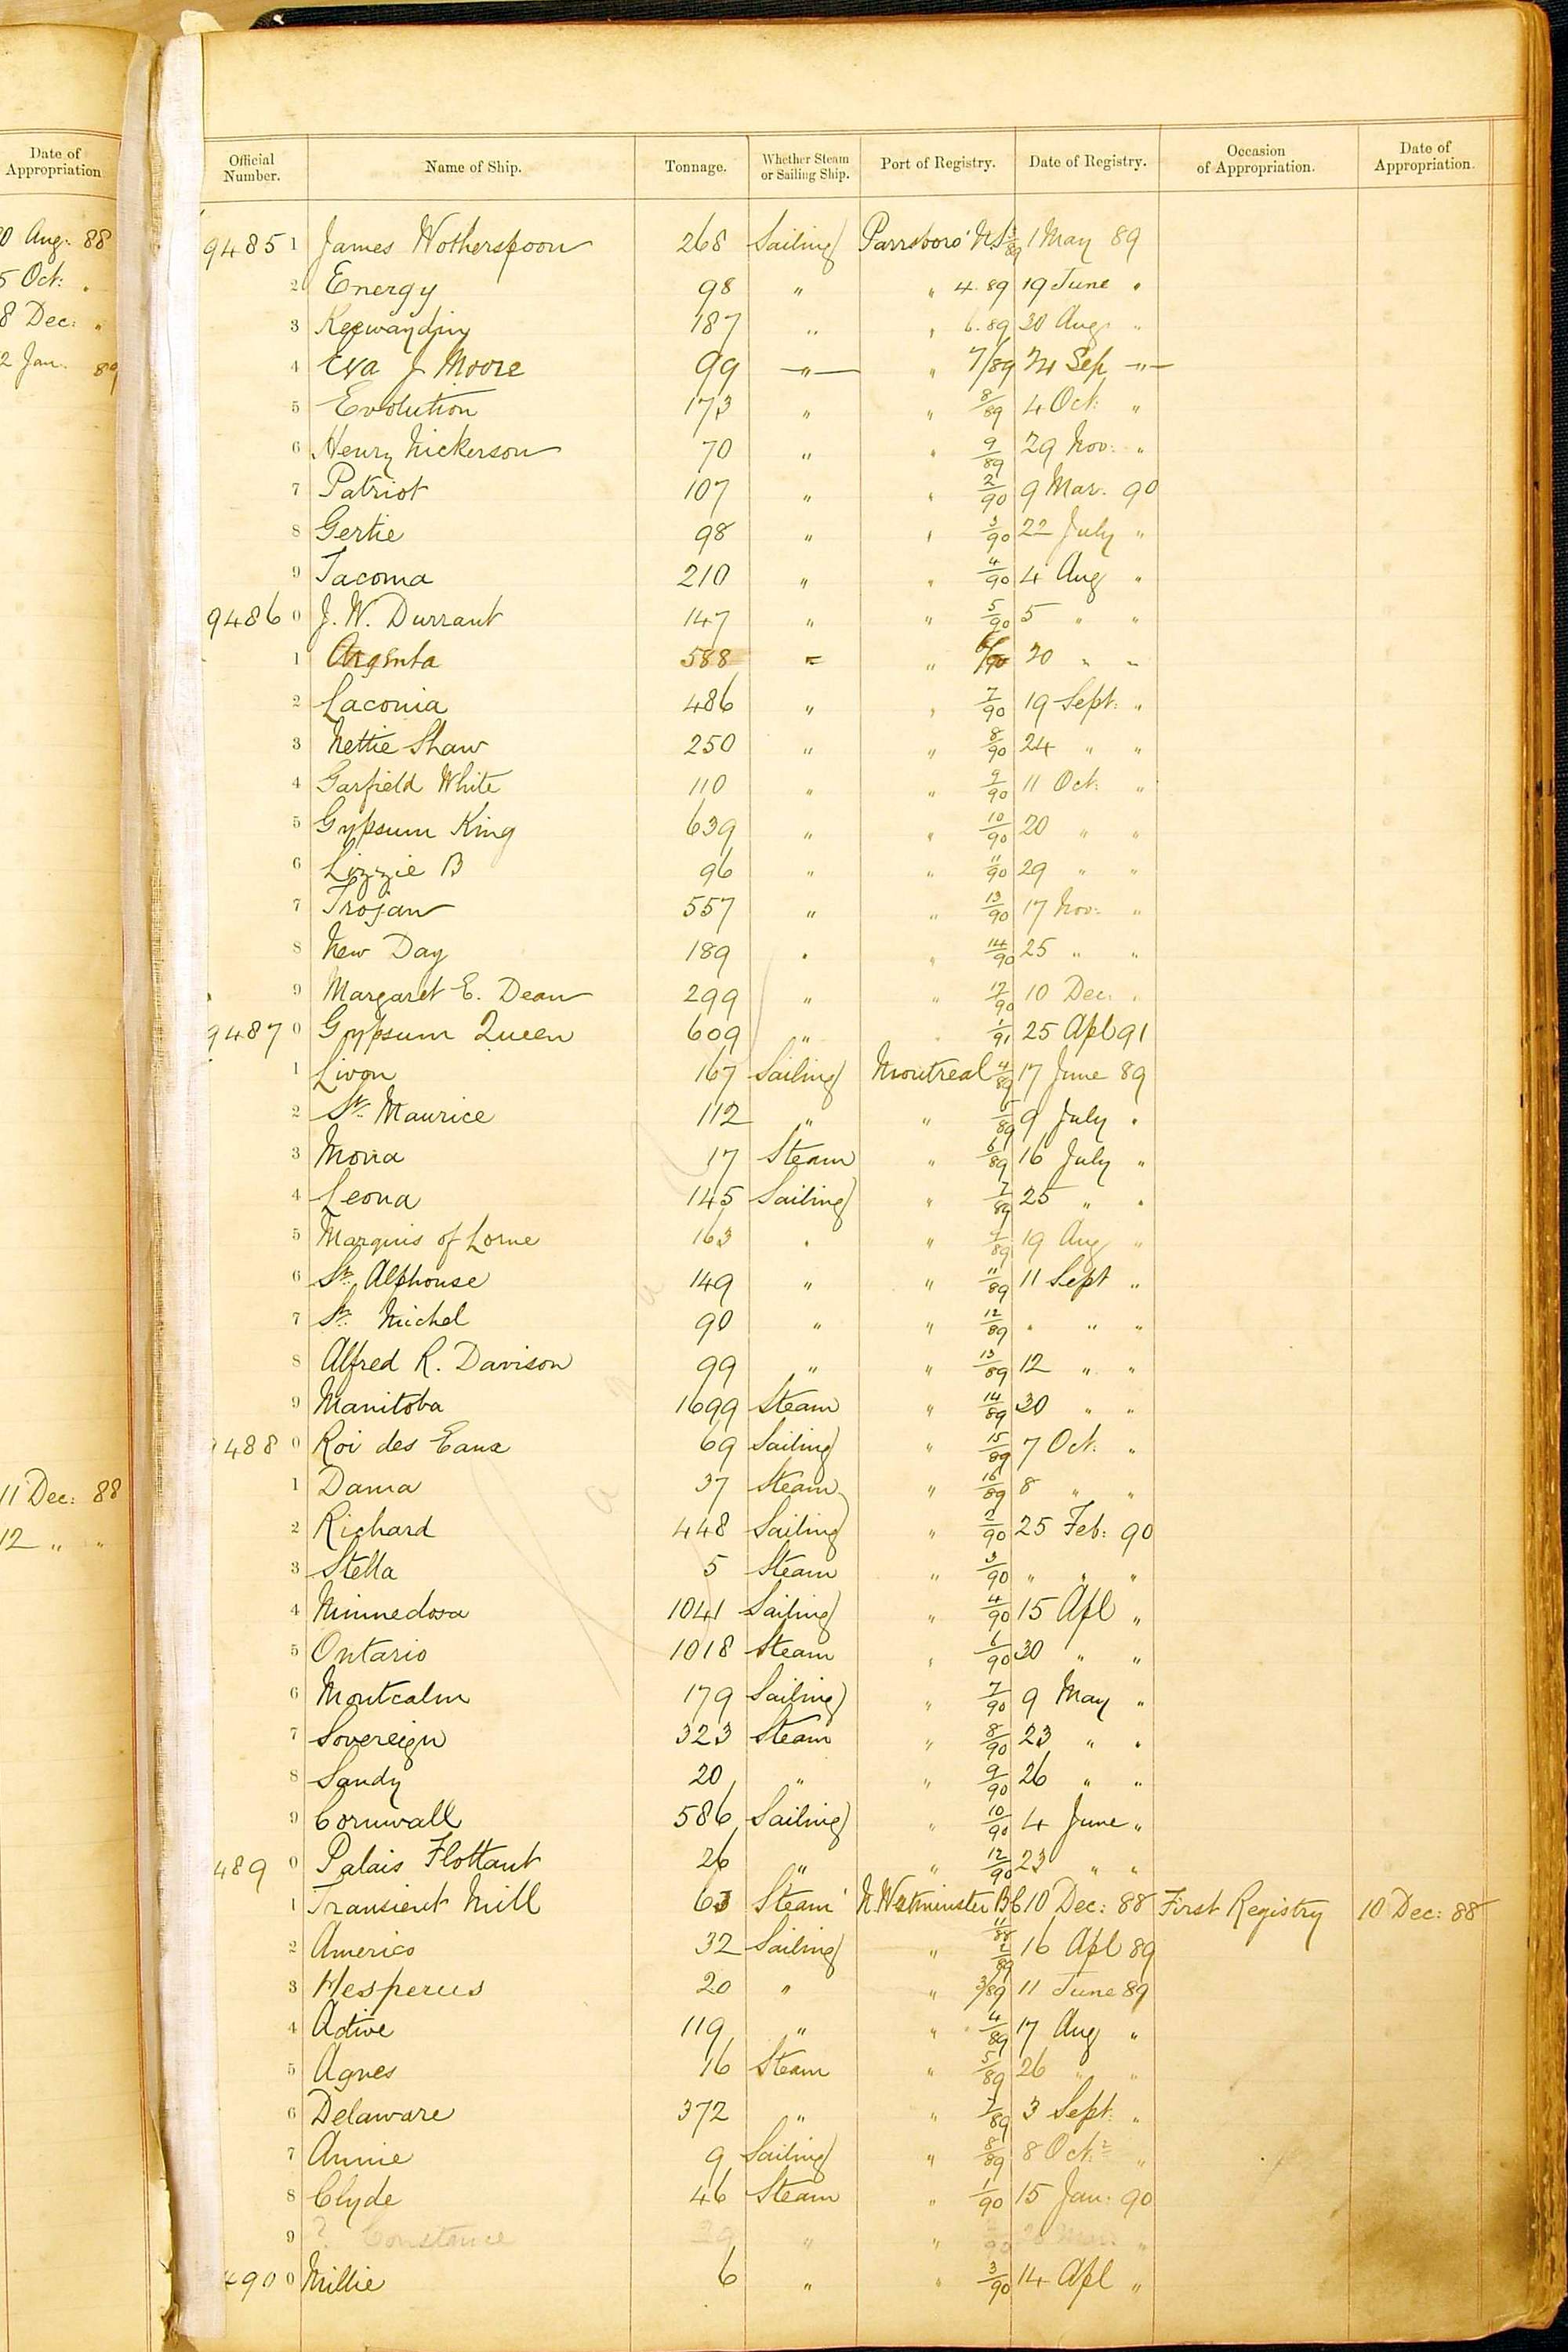 Date of
Appropriation
0 Aug: 88
5 Oct: "
8 Dec: "
2 Jan. 89
11 Dec: 88
12 " "
Official Number. Name of Ship. Tonnage. Whether Steam or Sailing Ship. Port of Registry. Date of Registry. Occasion of Appropriation. Date of Appropriation.
9485 1 James Wotherspoon 268 Sailing Parrsboro' N.S 3/89 1 May 89
2 Energy 98 " " 4.89 19 June "
3 Keewaydin 187 " " 6.89 30 Aug: "
4 Eva J Moore 99 " " 7/89 24 Sep "
5 Evolution 173 " " 8/89 4 Oct: "
6 Henry Nickerson 70 " " 9/89 29 Nov: "
7 Patriot 107 " " 2/90 9 Mar. 90
8 Gertie 98 " " 3/90 22 July "
9 Tacoma 210 " " 4/90 4 Aug "
9486 0 J. W. Durrant 147 " " 5/90 5 " "
1 Argenta 588 " " 6/90 20 " "
2 Laconia 486 " " 7/90 19 Sept: "
3 Nettie Shaw 250 " " 8/90 24 " "
4 Garfield White 110 " " 9/90 11 Oct: "
5 Gypsum King 639 " " 10/90 20 " "
6 Lizzie B 96 " " 11/90 29 " "
7 Trojan 557 " " 13/90 17 Nov: "
8 New Day 189 " " 14/90 25 " "
9 Margaret E. Dean 299 " " 17/90 10 Dec: "
9487 0 Gypsum Queen 609 " " 1/91 25 Apl 91
1 Livon 167 Sailing Montreal 4/89 17 June 89
2 St. Maurice 112 " " 5/89 9 July "
3 Mona 17 Steam " 6/89 16 July "
4 Leona 145 Sailing " 7/89 25 " "
5 Marquis of Lorne 163 " " 19 Aug "
6 St. Alphonse 149 " " 11/89 11 Sept "
7 St. Michel 90 " " 12/89 " " "
8 Alfred R. Davison 99 " " 13/89 12 " "
9 Manitoba 1699 Steam " 14/89 30 " "
9488 0 Roi des Eaux 69 Sailing " 15/89 7 Oct: "
1 Dama 37 Steam " 16/89 8 " "
2 Richard 448 Sailing " 2/90 25 Feb: 90
3 Stella 5 Steam " 3/90 " " "
4 Minnedosa 1041 Sailing " 4/90 15 Apl "
5 Ontario 1018 Steam " 6/90 30 " "
6 Montcalm 179 Sailing " 7/90 9 May "
7 Sovereign 323 Steam " 8/90 23 " "
8 Sandy 20 " " 9/90 26 " "
9 Cornwall 586 Sailing " 10/90 4 June "
489 0 Palais Flottant 26 " " 12/90 23 " "
1 Transient Mill 63 Steam N. Westminster BC 11/88 10 Dec: 88 First Registry 10 Dec: 88
2 Americo 32 Sailing " 2/89 16 Apl 89
3 Hesperus 20 " " 3/89 11 June 89
4 Active 119 " " 4/89 17 Aug "
5 Agnes 16 Steam " 5/89 26 " "
6 Delaware 372 " " 7/89 3 Sept: "
7 Annie 9 Sailing " 8/89 8 Oct: "
8 Clyde 46 Steam " 1/90 15 Jan: 90
9 ? Constance 39 " "
490 0 Millie 6 " " 3/90 14 Apl "